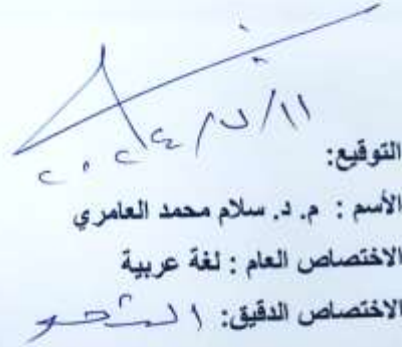 ٢٠٢٤/٧/١١
التوقيع:
الأسم : م. د. سلام محمد العامري
الاختصاص العام : لغة عربية
الاختصاص الدقيق: النحو